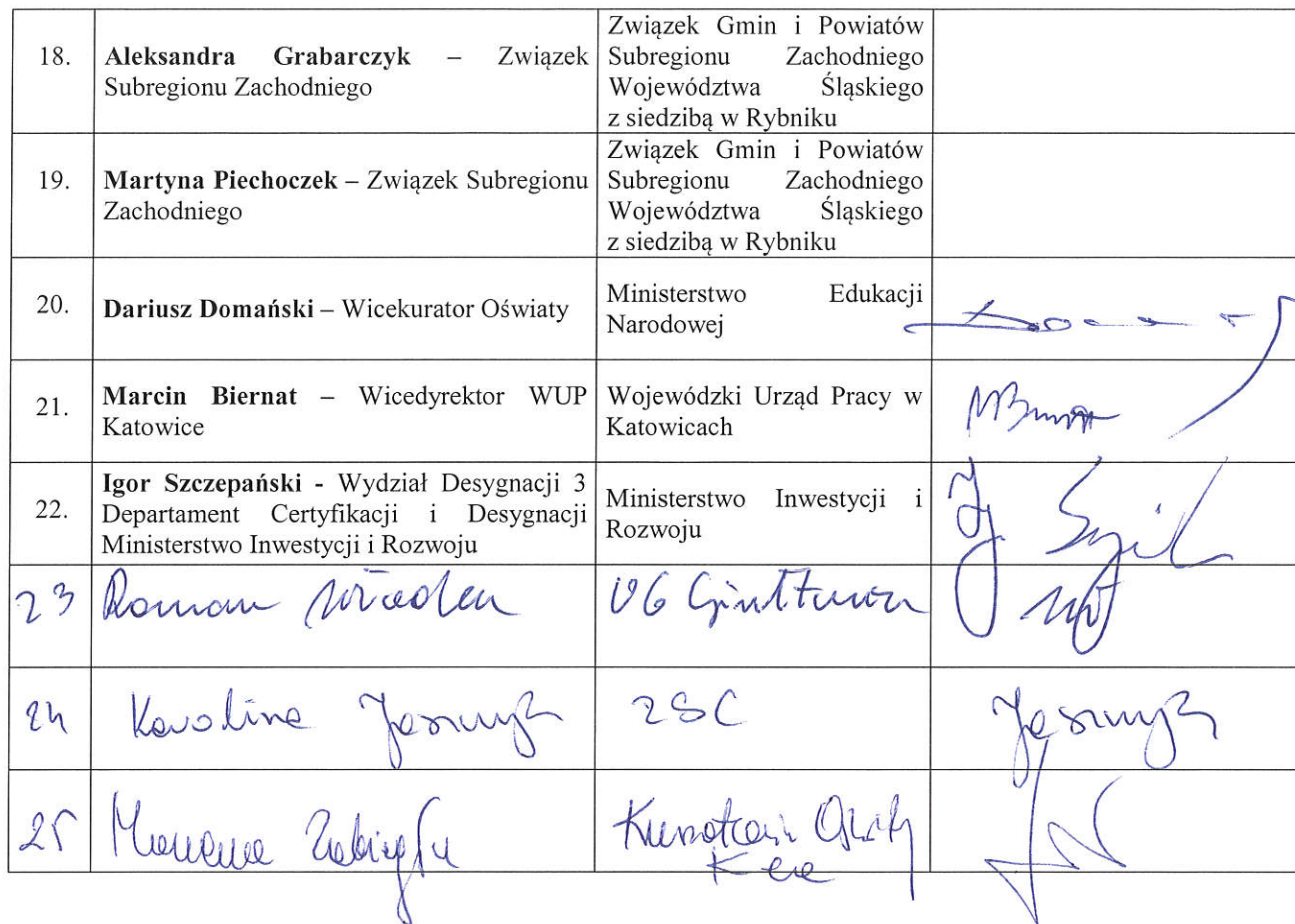 18.
Aleksandra Grabarczyk – Związek
Subregionu Zachodniego
Związek Gmin i Powiatów
Subregionu Zachodniego
Województwa Śląskiego
z siedzibą w Rybniku
19.
Martyna Piechoczek – Związek Subregionu
Zachodniego
Związek Gmin i Powiatów
Subregionu Zachodniego
Województwa Śląskiego
z siedzibą w Rybniku
20.
Dariusz Domański – Wicekurator Oświaty
Ministerstwo Edukacji
Narodowej
21.
Marcin Biernat – Wicedyrektor WUP
Katowice
Wojewódzki Urząd Pracy w
Katowicach
22.
Igor Szczepański - Wydział Desygnacji 3
Departament Certyfikacji i Desygnacji
Ministerstwo Inwestycji i Rozwoju
Ministerstwo Inwestycji i
Rozwoju
23 Roman
24 Karolina
25